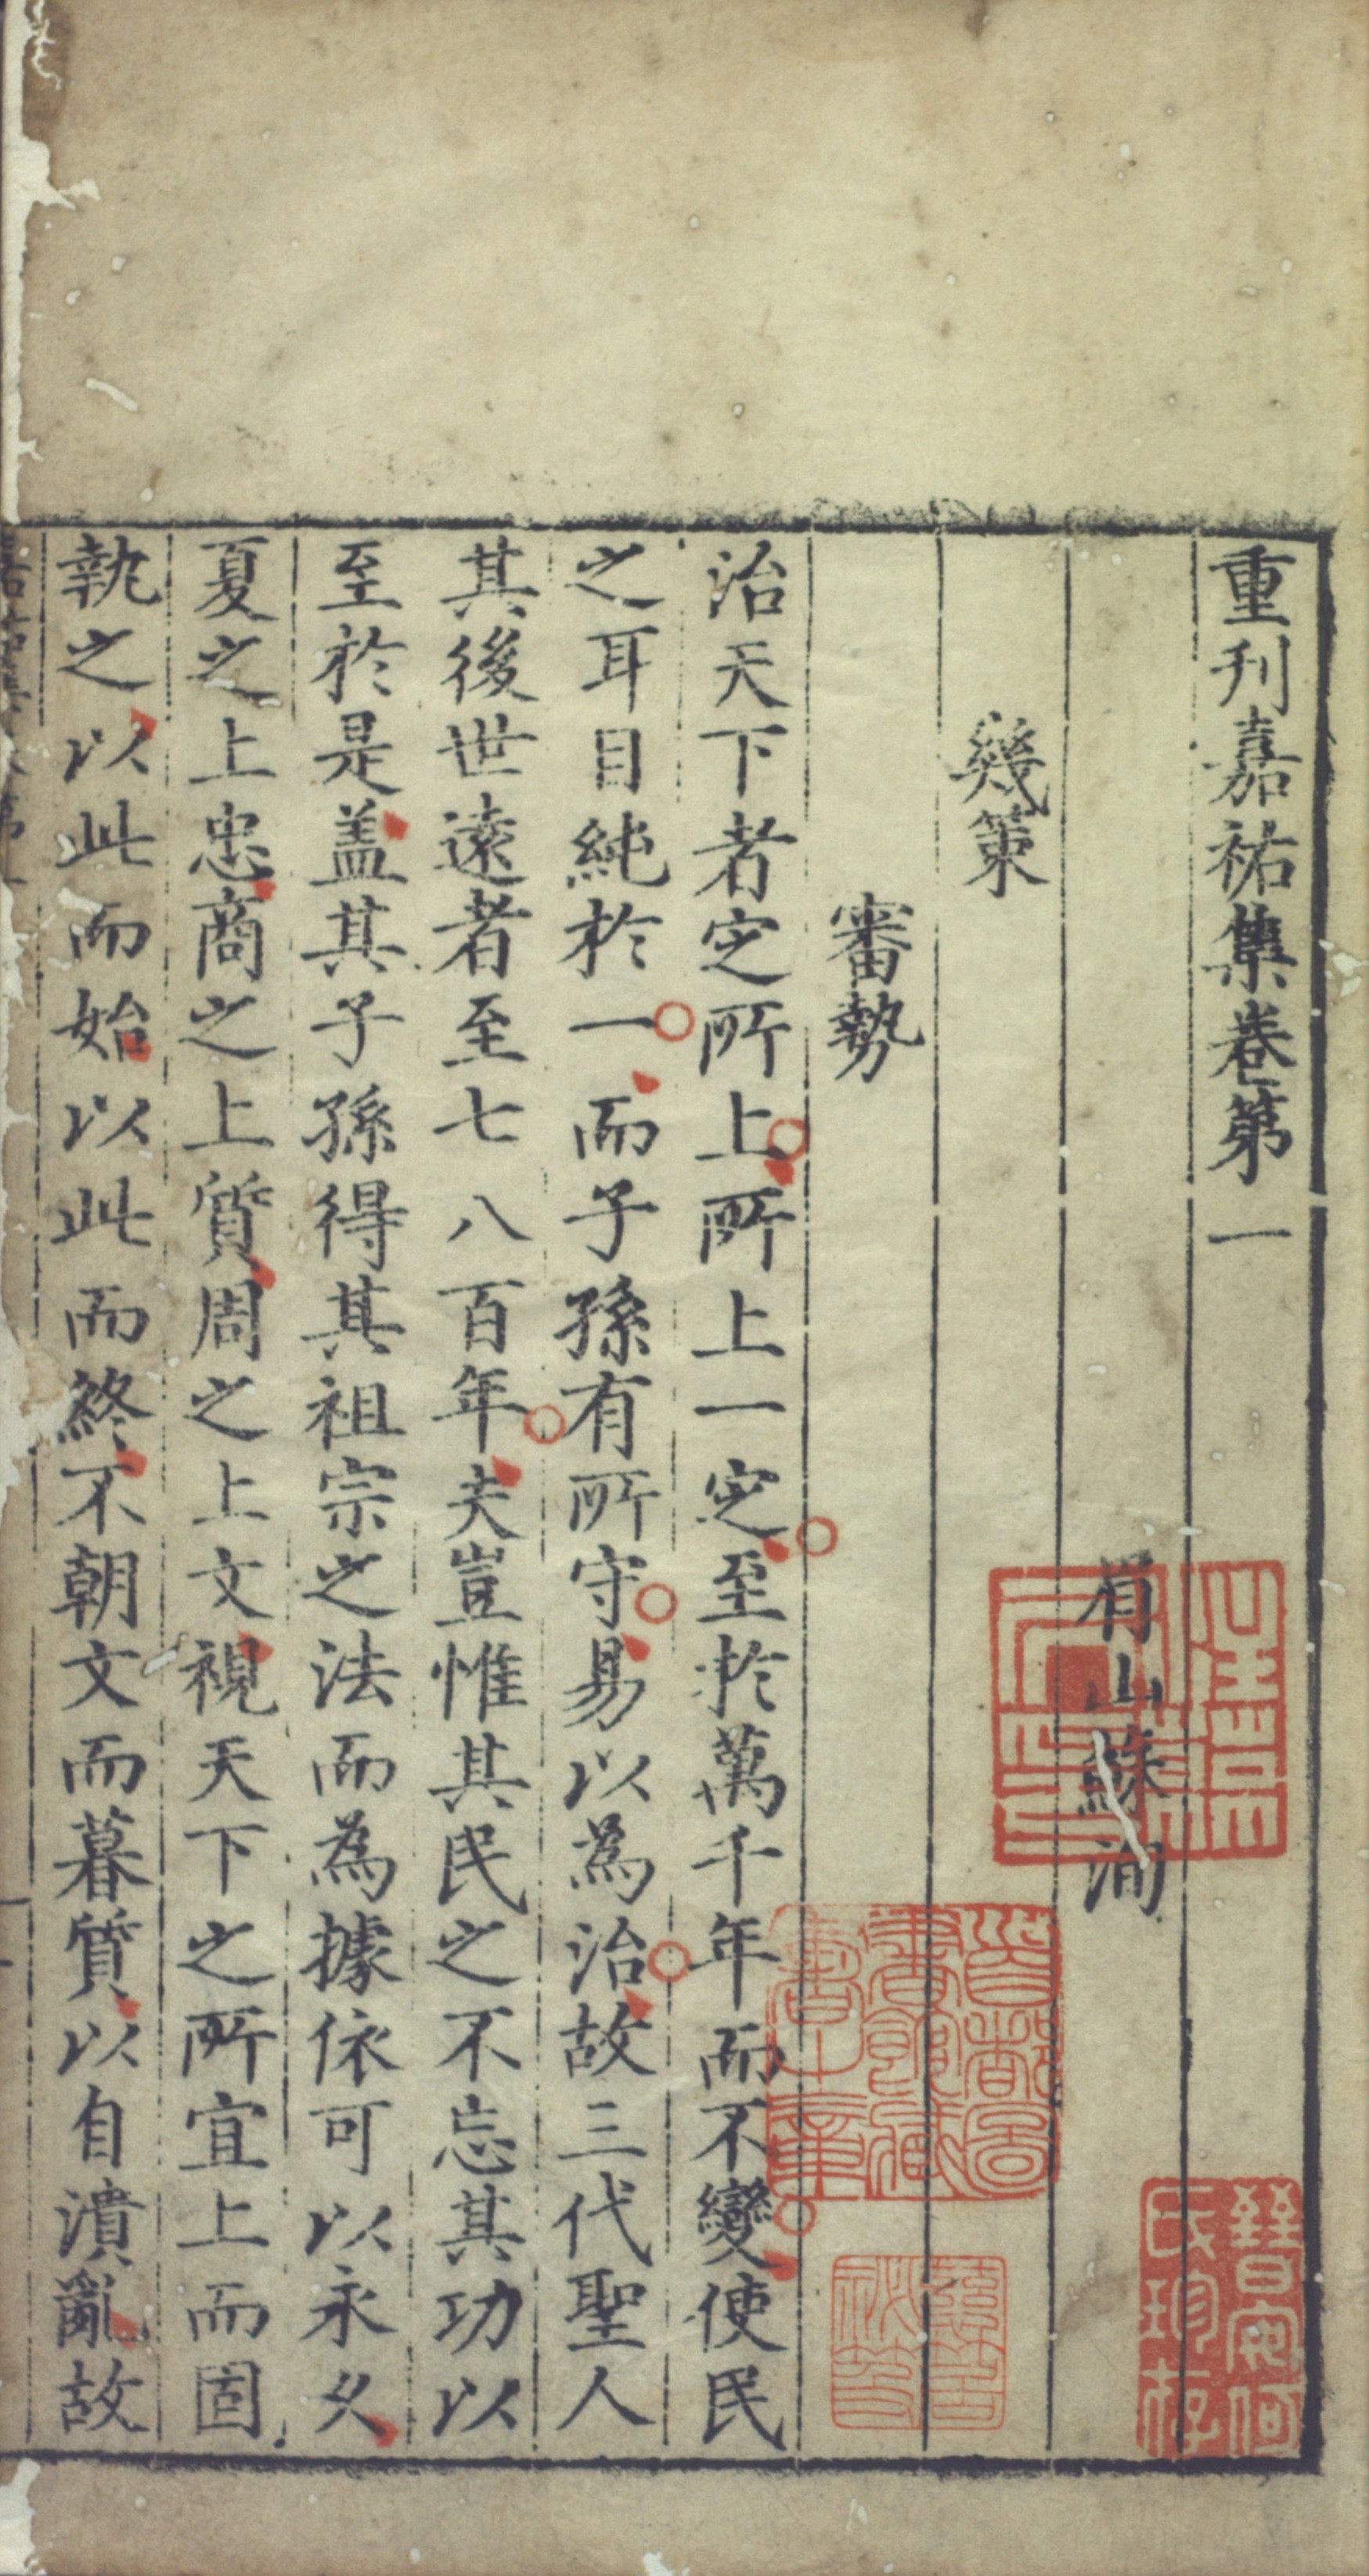 重刊嘉祐集卷第一
眉山蘇洵
幾策
審勢
治天下者定所上所上一定至於萬千年而不變使民
之耳目純於一而子孫有所守易以為治故三代聖人
其後世遠者至七八百年夫豈惟其民之不忘其功以
至於是盖其子孫得其祖宗之法而為據依可以永久
夏之上忠商之上質周之上文視天下之所宜上而固
執之以此而始以此而終不朝文而暮質以自潰亂故
首都圖書館藏書之章
晉安何氏珍存